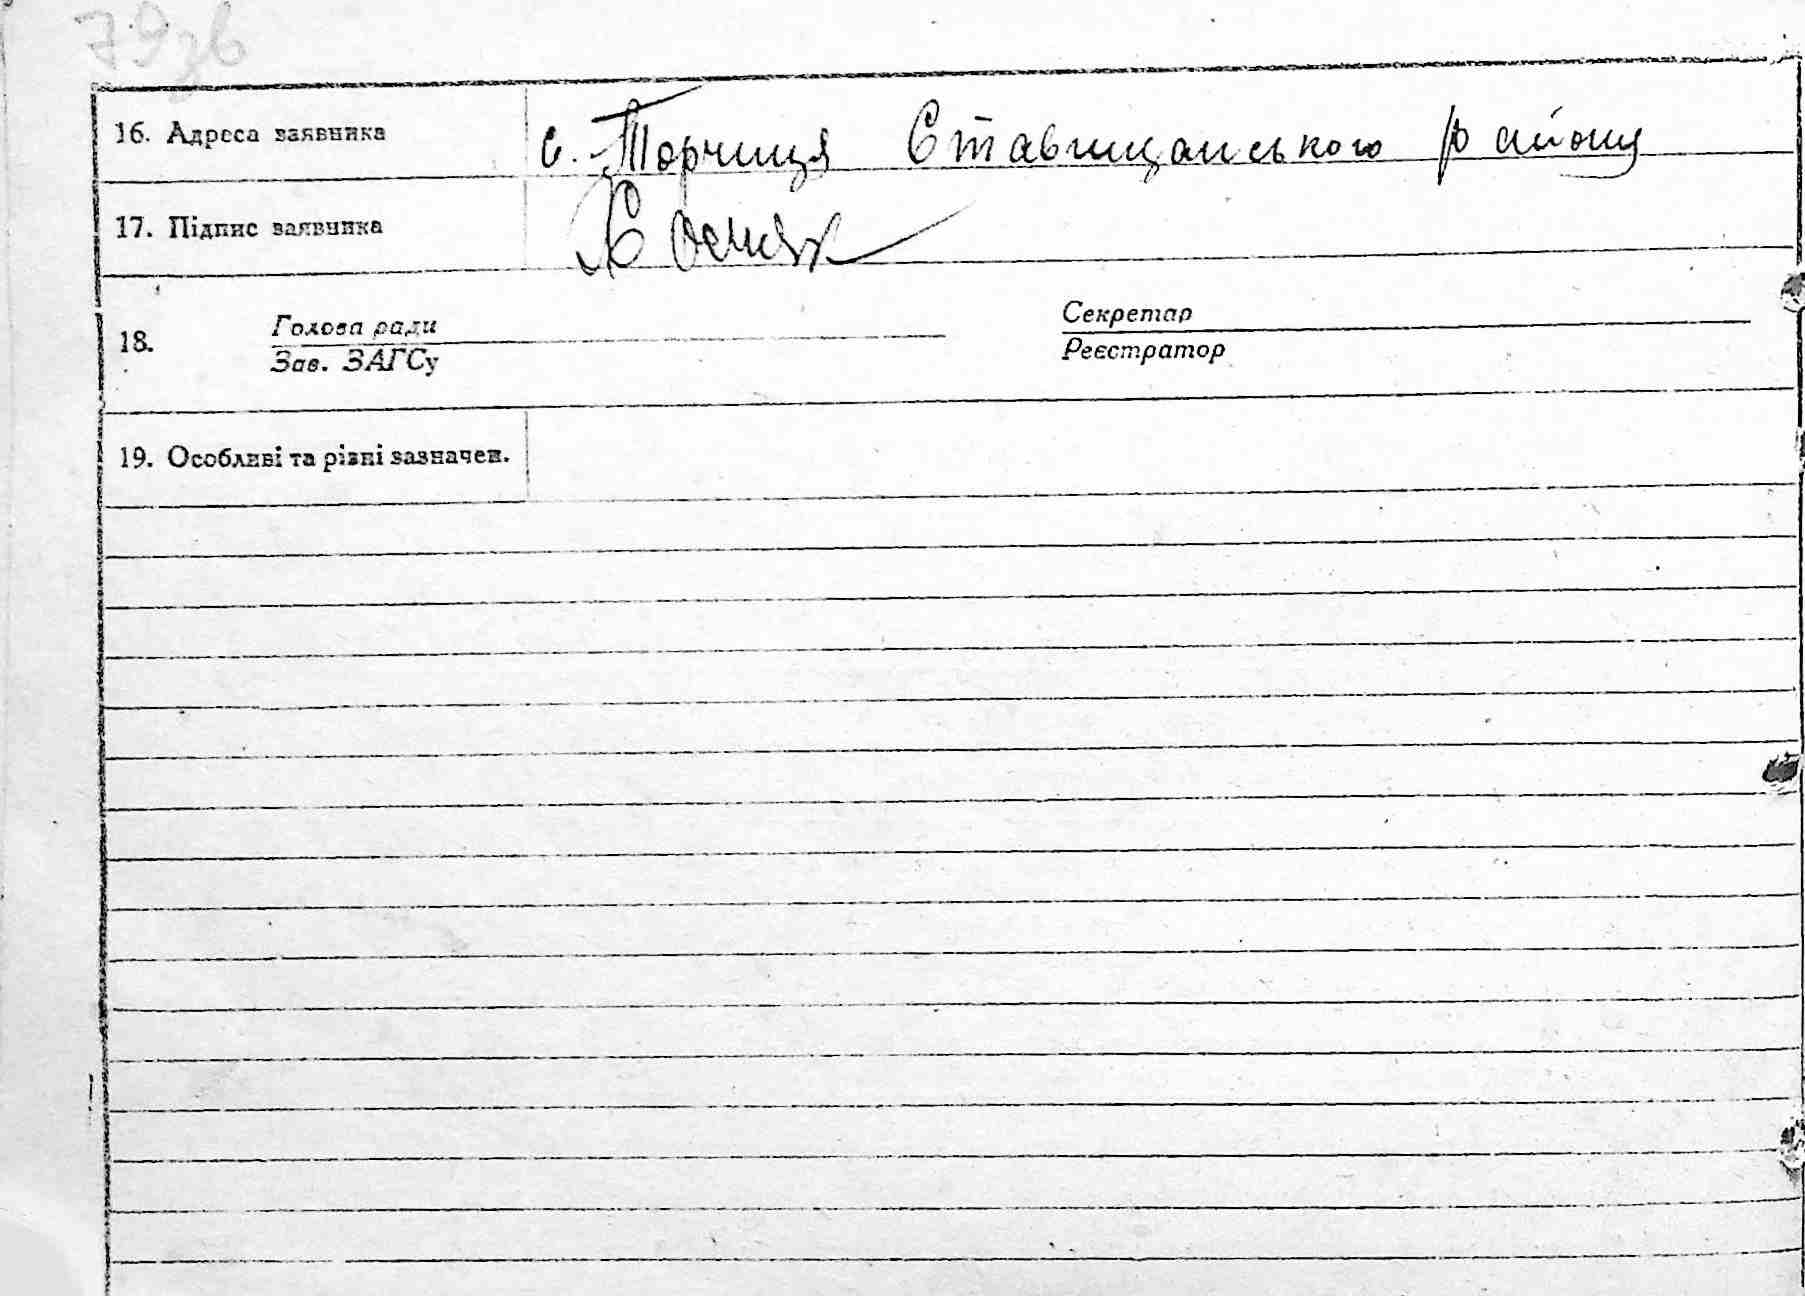 79зв
16. Адреса заявника с. Торчиця Ставищанського району
17. Підпис заявника
18. Голова ради Секретар
Зав. ЗАГСу Реєстратор
19. Особливі та різні зазначен.